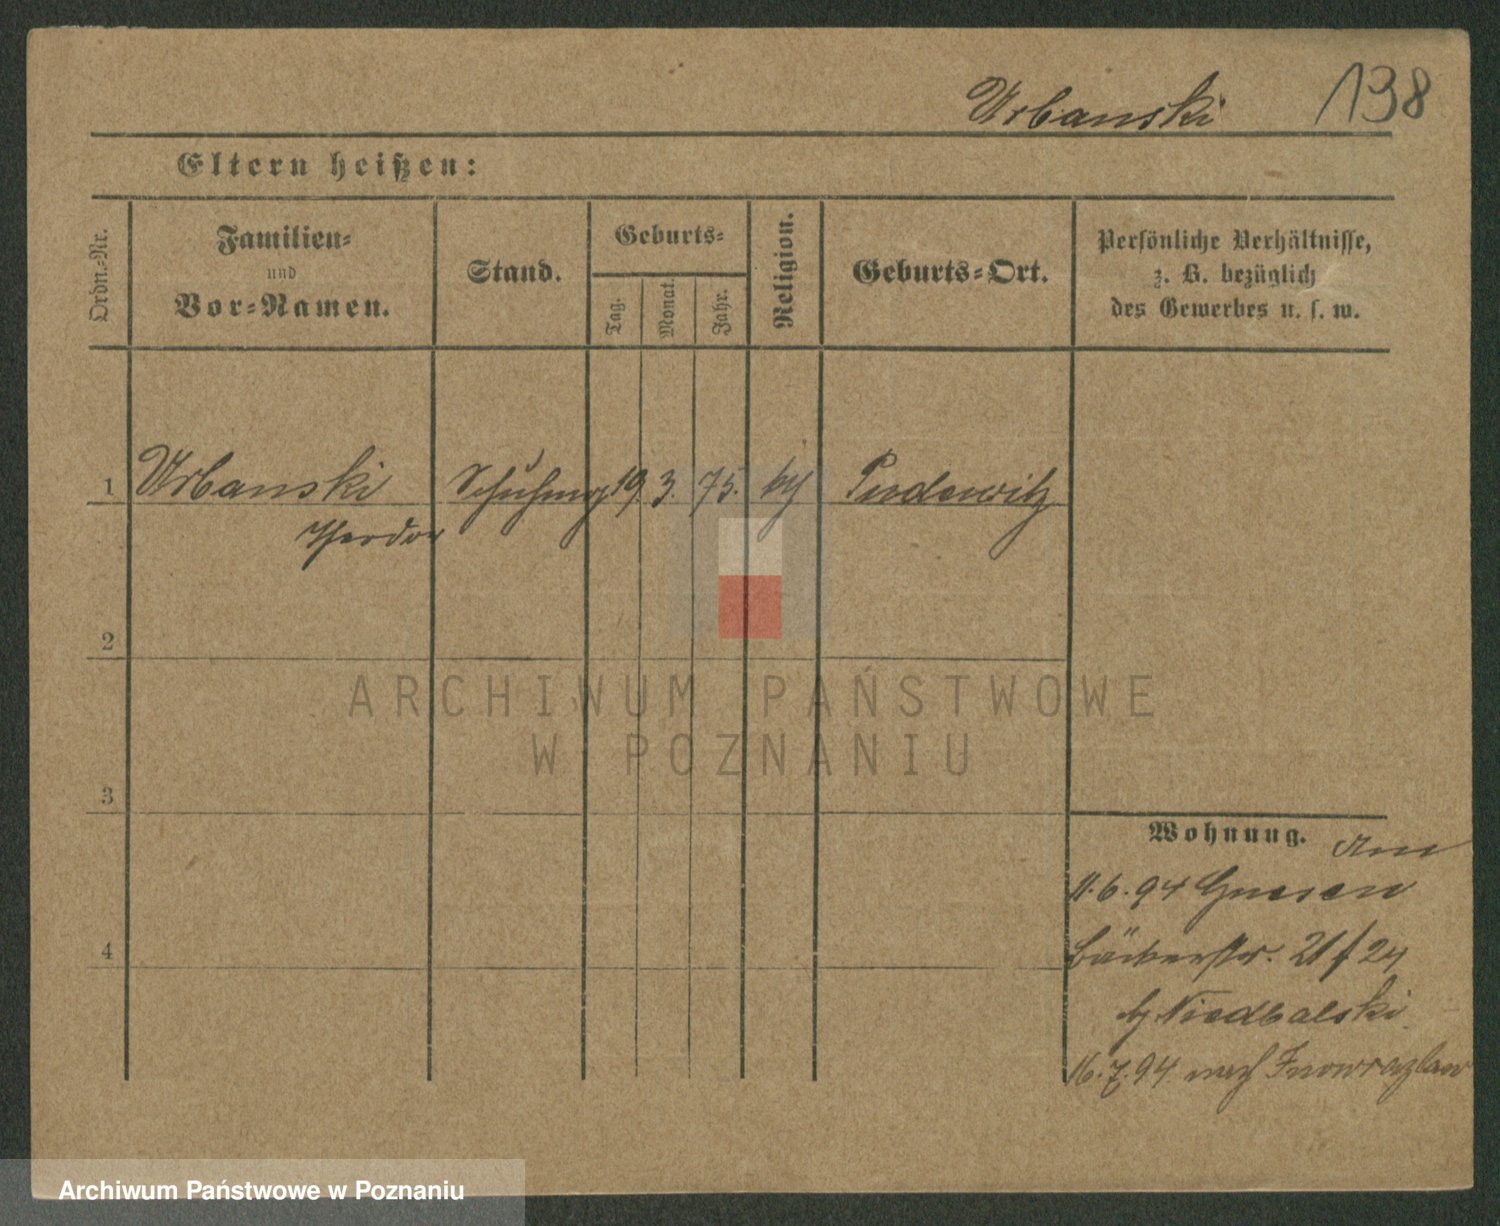 Urbanski 138
Eltern heißen:
Ordn.-Nr.
Familien-
und
Vor-Namen.
Stand.
Geburts-
Tag.
Monat.
Jahr.
Religion.
Geburts-Ort.
Persönliche Verhältnisse,
z. B. bezüglich
des Gewerbes u. s. w.
1 Urbanski 19. 3. 75. Pudewitz
Theodor
2
ARCHIWUM PAŃSTWOWE
W POZNANIU
3
Wohnung.
11.6.94 Gnesen
Bäckerstr. 21/24
Niedbalski
4
16.7.94 nach Inowrazlaw
Archiwum Państwowe w Poznaniu